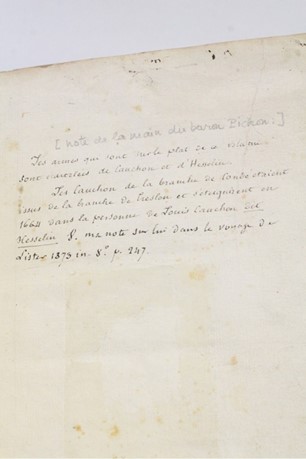 [note de la main du baron Pichon:]
Les armes qui sont sur le plat de ce volume
sont écartelées de Cauchon et d'Hesselin
Les Cauchon de la branche de étaient
issus de la branche de et s'éteignirent en
1664 dans la personne de Louis Cauchon dit
Hesselin V. ma note sur lui dans le voyage de
Lister 1873 in 8° p. 247.